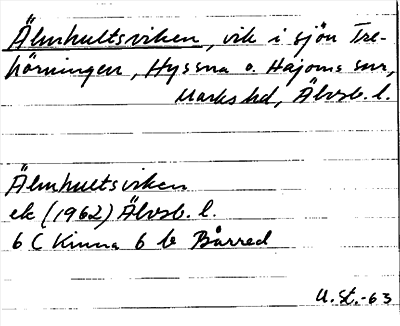 Älmhultsviken, vik i sjön Tre-
hörningen, Hyssna o. Hajoms snr,
Marks hd, Älvsb. l.
Älmhultsviken
ek (1962) Älvsb. l.
6 C Kinna 6 b Bårred
U.St.-63